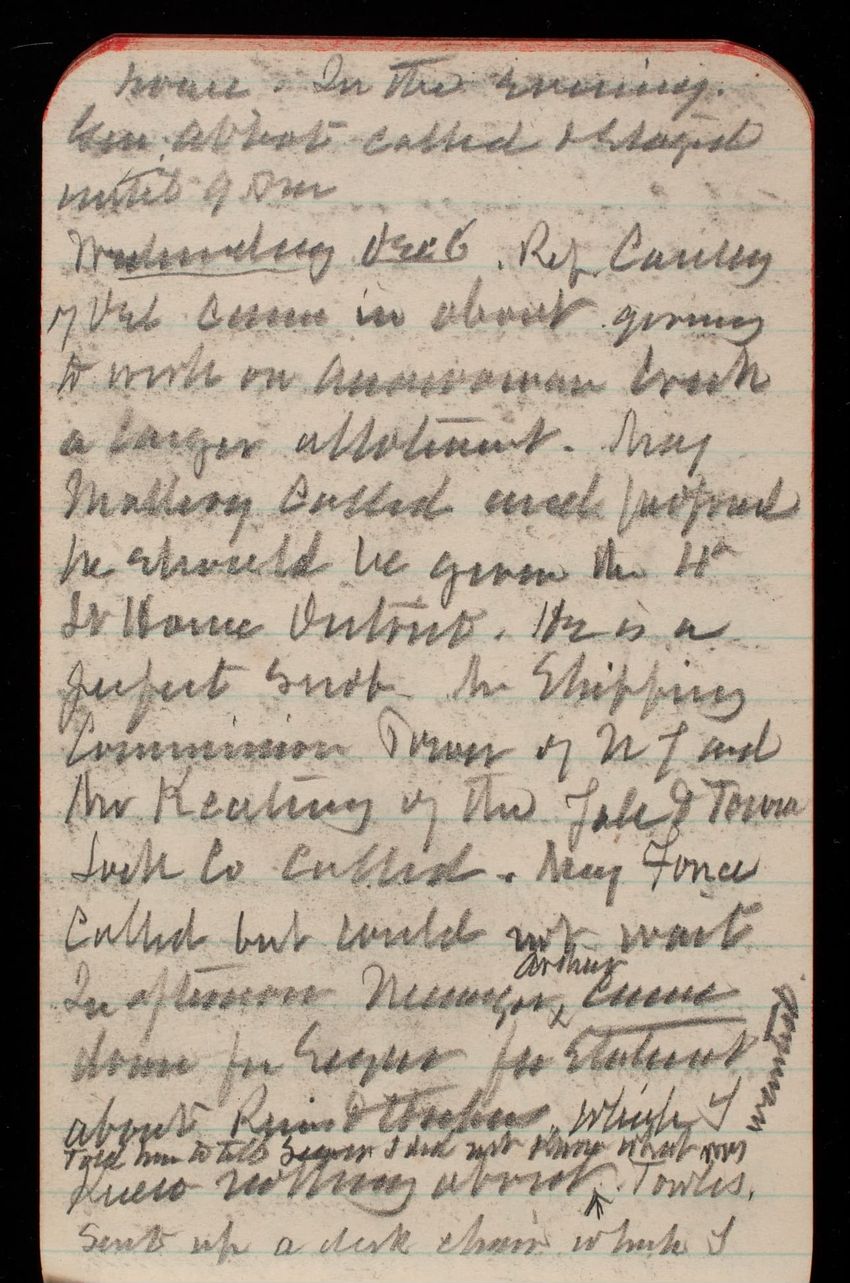 house. In the evening.
Gen Abbot called & stayed
until 9 Pm
Wednesday Dec 6. Rep Causey
of Del came in about going
to work on Creek
a larger allotment. Maj
Mallery called and proposed
he should be given the 4th
Lt House District. He is a
perfect snob. Mr Shipping
Commission Power of N J and
Mr Keating of the Yale & Towne
Lock Co called. Maj
called but could not wait
In afternoon Messenger Arthur came
down for Seaman for statement
about which I
Told him to tell I did not know what was
knew nothing about. Towles,
Sent up a desk chair which I